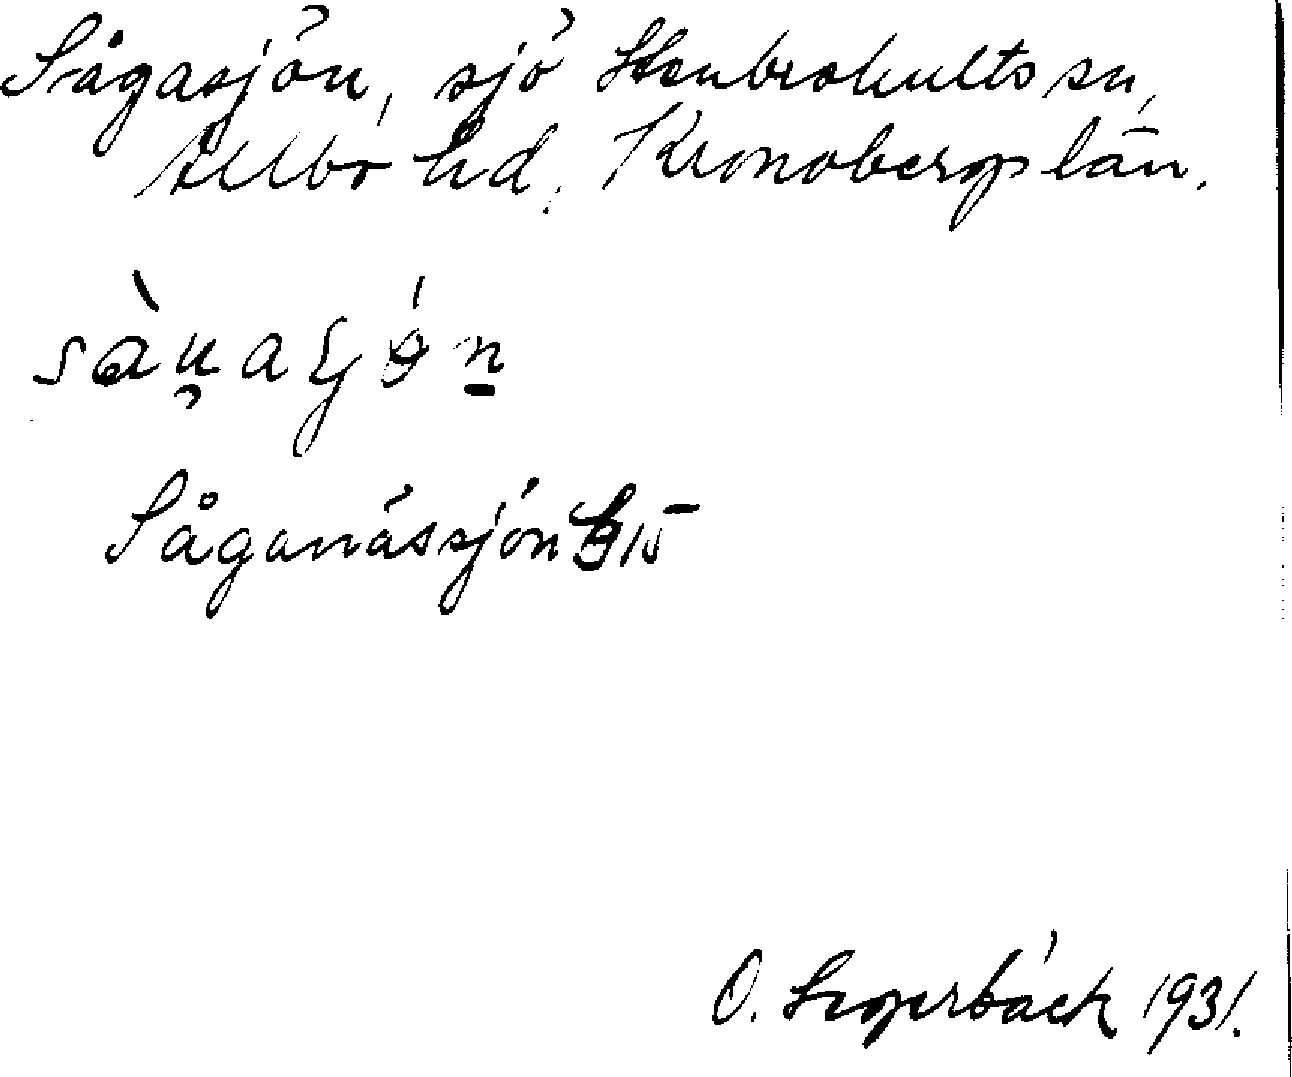 Sågasjön, sjö Stenbrohults sn,
Allbo hd. Kronobergs län.
Såganässjön
O. Segerbäck 1931.